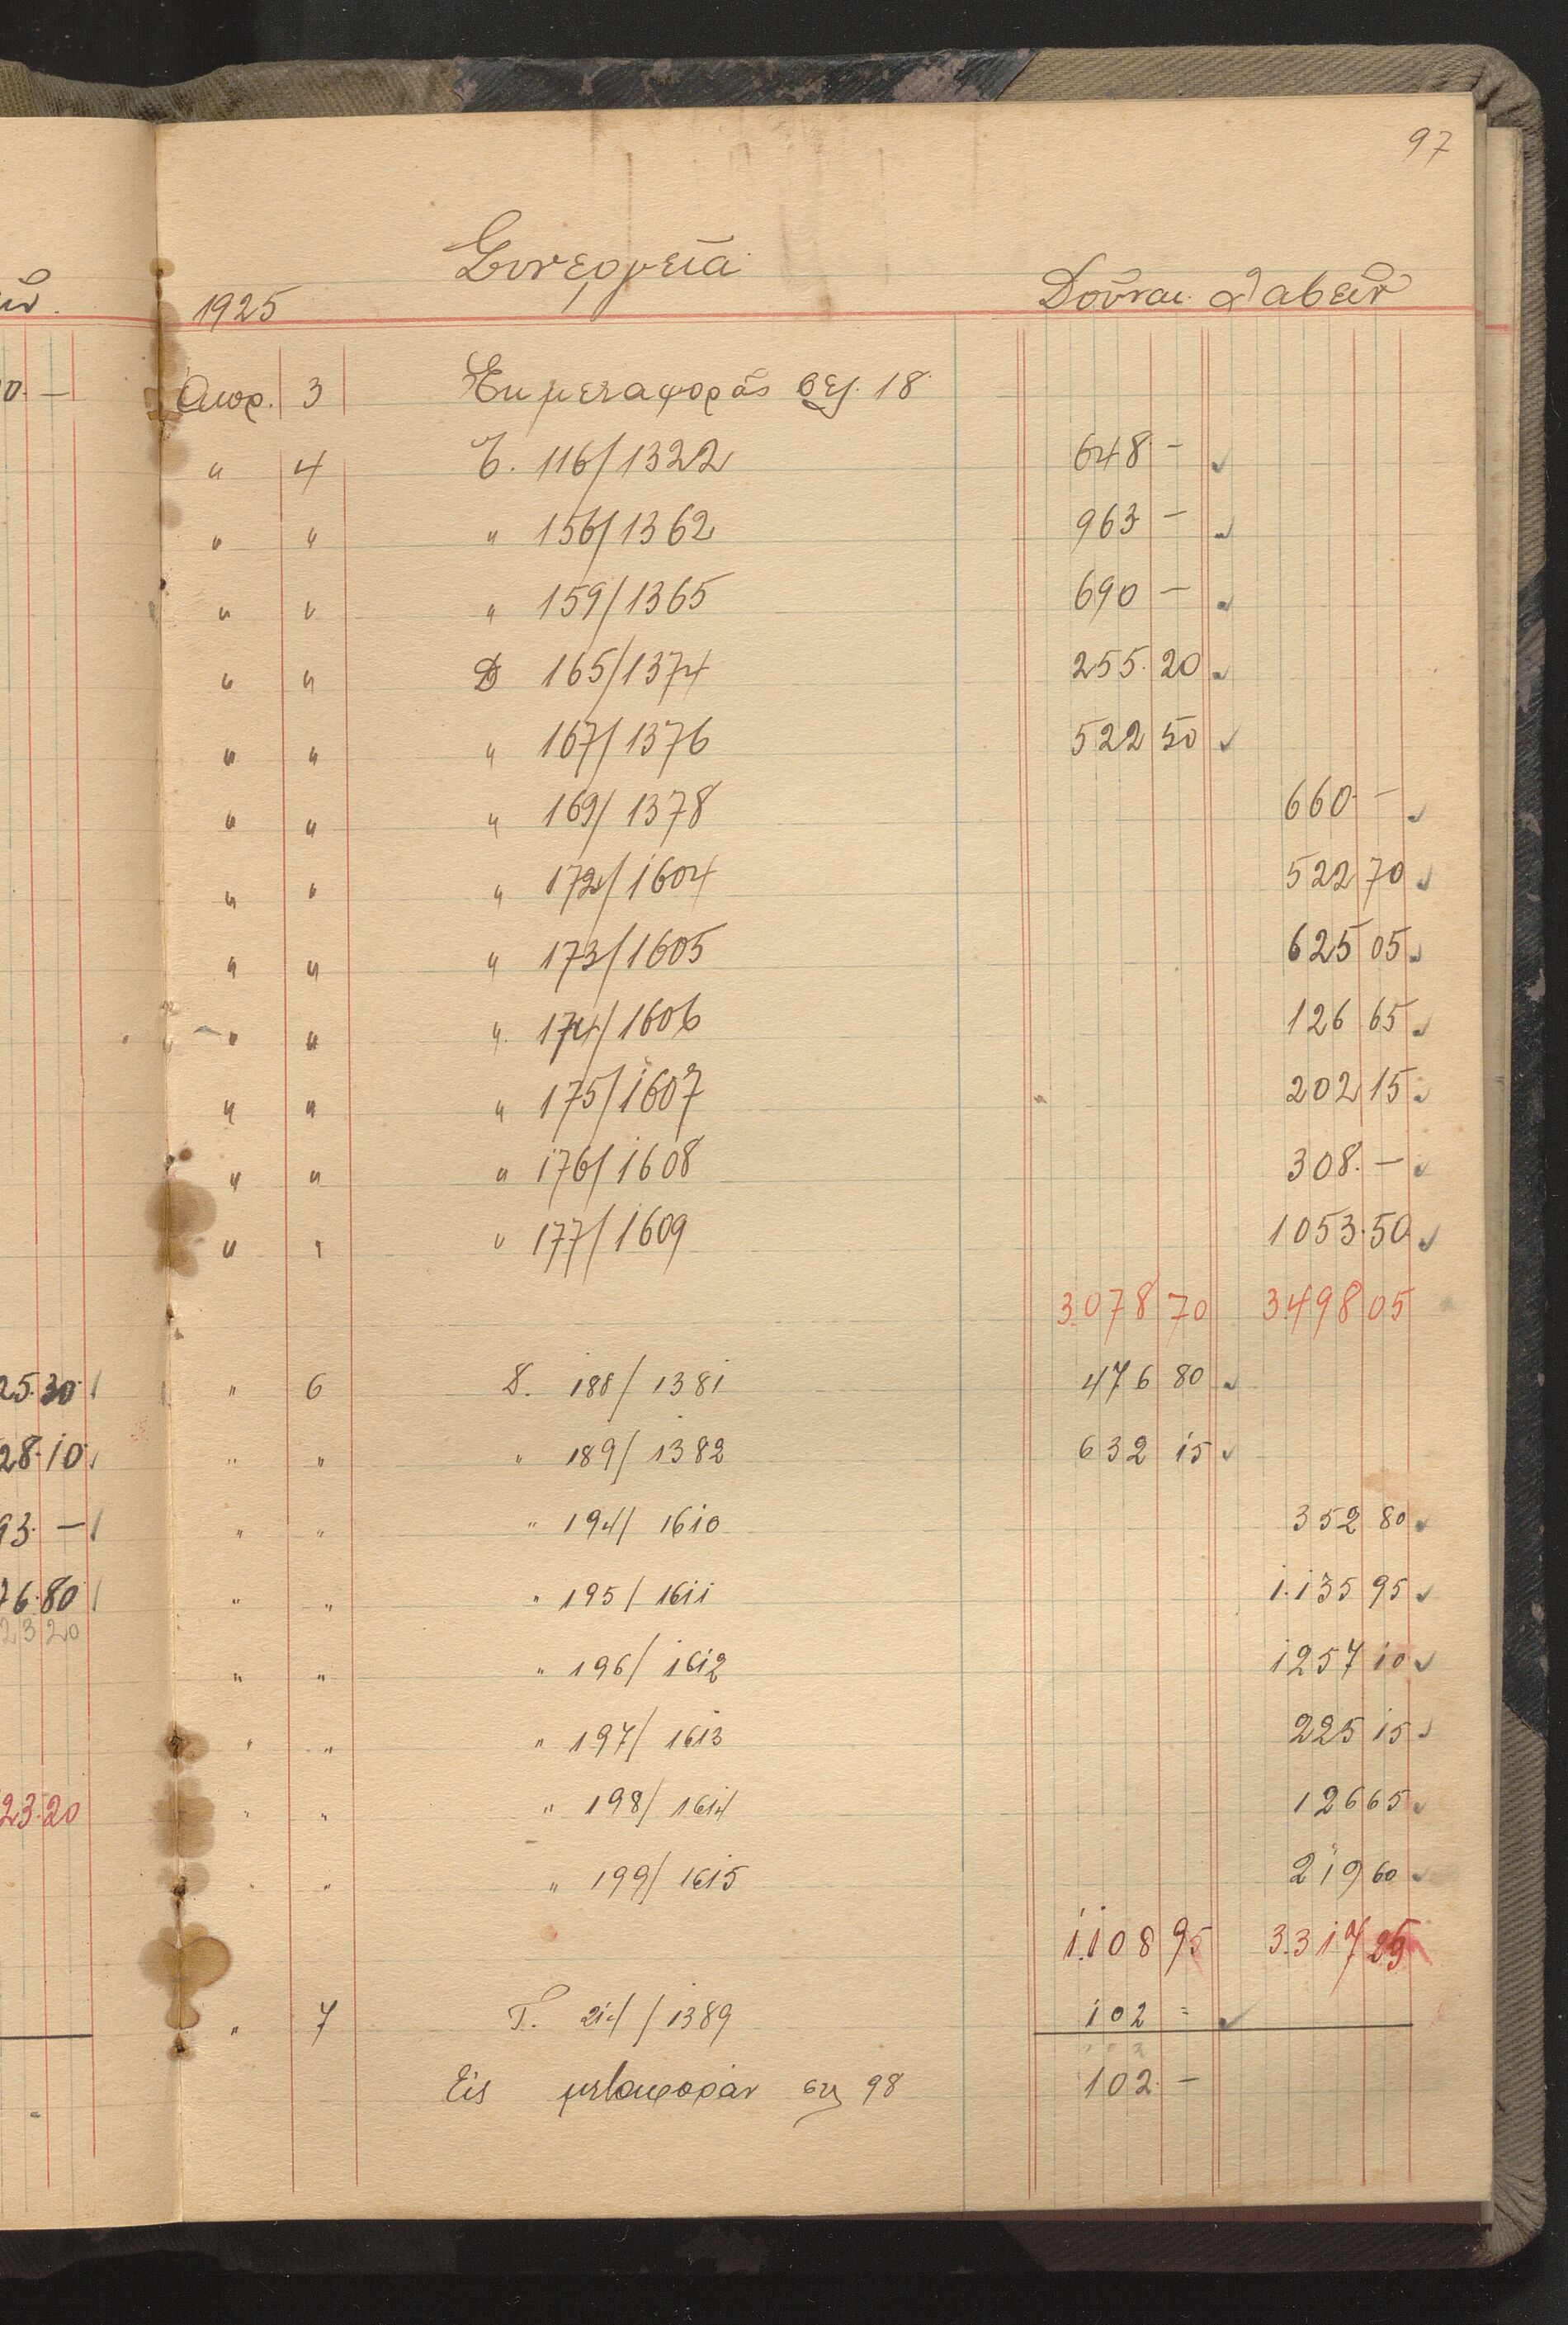 97
Συνεργεία
1925 Δοῦναι. Λαβεῖν
Απρ. 3 Ἐκ μεταφορᾶς σελ. 18
" 4 Τ. 116/1322 648 – ✓
" " " 156/1362 963 – ✓
" " " 159/1365 690 – ✓
" " Δ 165/1374 255.20 ✓
" " " 167/1376 522 50 ✓
" " " 169/1378 660 – ✓
" " " 172/1604 522 70 ✓
" " " 173/1605 625 05 ✓
" " " 174/1606 126 65 ✓
" " " 175/1607 202 15 ✓
" " " 176/1608 308. – ✓
" " " 177/1609 1053.50 ✓
3.078 70 3.498 05
" 6 Δ. 188/1381 476 80 ✓
" " " 189/1382 632 15 ✓
" " " 194/1610 352 80 ✓
" " " 195/1611 1.135 95 ✓
" " " 196/1612 1257 10 ✓
" " " 197/1613 225 15 ✓
" " " 198/1614 126 65 ✓
" " " 199/1615 219 60 ✓
1.108 95 3.317 25
" 7 Τ. 214/1389 102 = ✓
Εἰς μεταφοράν σελ 98 102 –
25.30
28.10
93. –
76.80
23 20
23.20